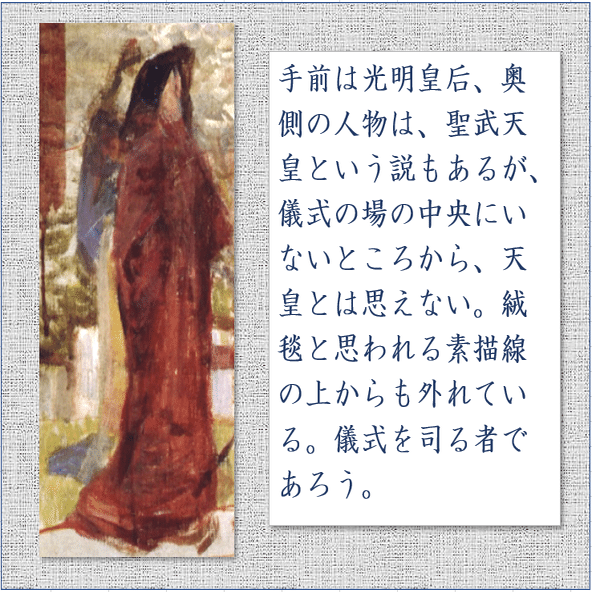 手前は光明皇后、奥
側の人物は、聖武天
皇という説もあるが、
儀式の場の中央にい
ないところから、天
皇とは思えない。絨
毯と思われる素描線
の上からも外れてい
る。儀式を司る者で
あろう。